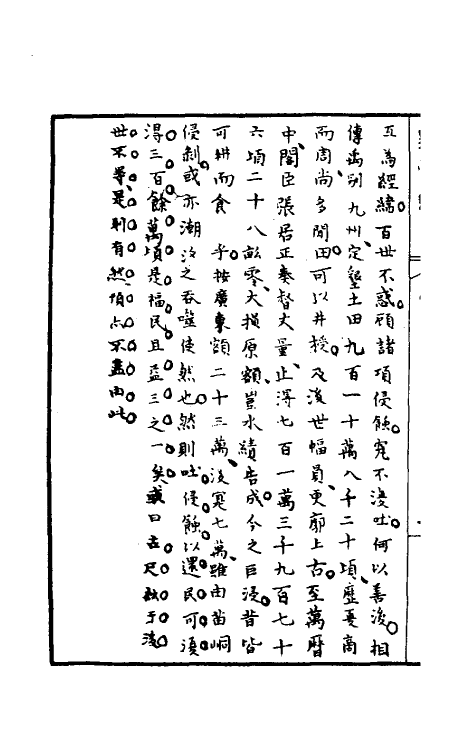 互為經緯百世不惑顧諸項侵蝕究不淩吐何以善後相
傳禹別九州定墾土田九百一十萬八千二十頃歷夏商
而周尚多閒田可以井授及後世幅員更廓上古至萬曆
中閣臣張居正奏督丈量止得七百一萬三千九百七十
六頃二十八畝零大損原額豈水績告成今之巨浸昔皆
可耕而食乎按廣東額二十三萬後寔七萬雖由苗峒
侵剝或亦潮汐之吞噬使然也然則吐侵蝕以還民可須
得三百餘萬頃是福民且益三之一矣或曰古尺数于後
世不等是則有然項占不盡由此